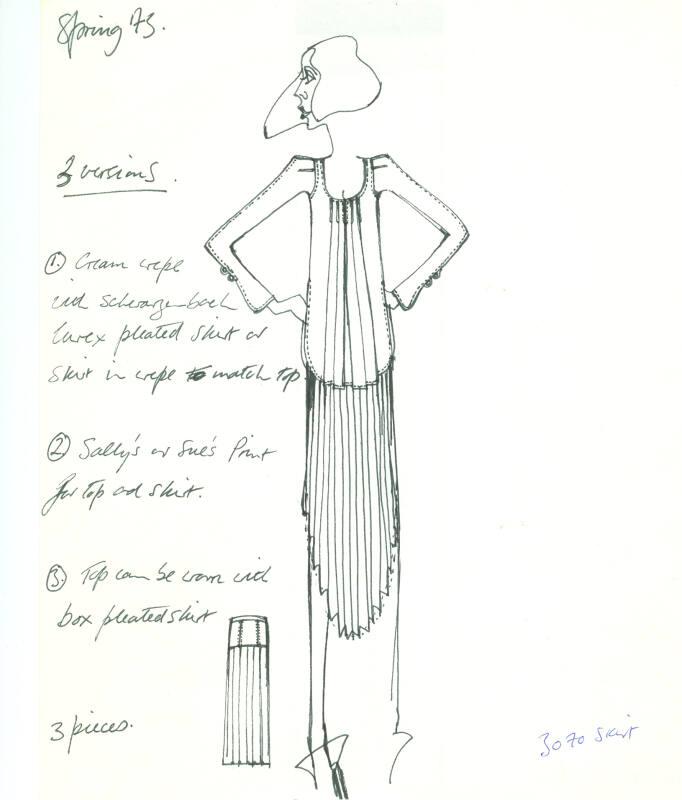 Spring 73.
3 versions.
① Cream crepe
with Schwarzenbach
lurex pleated skirt or
skirt in crepe to match top.
② Sally's or Sue's Print
for top and skirt.
③ Top can be worn with
box pleated skirt
3 pieces.
3070 skirt